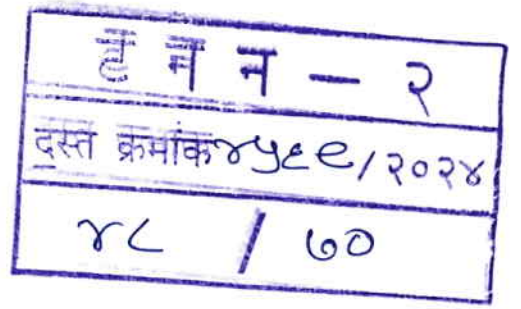 ट न न - २
दस्त क्रमांक ४५६९/२०२४
४८ / ७०